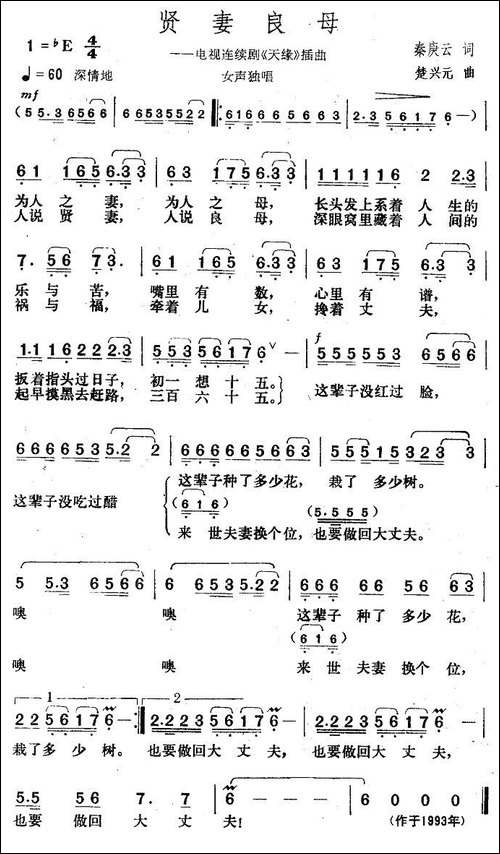 贤妻良母
1=♭E 4/4
——电视连续剧《天缘》插曲
秦庚云 词
♩=60 深情地
女声独唱
楚兴元 曲
mf
(55.3 6566 | 66535522 |: 63 175 6.33 | 2.3 556176—)
61 165 6.33 | 63 175 6.33 | 11111116 2 2.3
为人之妻, 为人之母, 长头发上系着 人 生的
人说贤妻, 人说良母, 深眼窝里藏着 人 间的
7. 56 73. | 61 165 6.33 | 63 175 6.3 3
乐 与 苦, 嘴里有数, 心里有谱,
祸 与 福, 牵着儿女, 搀着丈夫,
1.1 1 1 6 2 2 2.3 | 553556176 ∨ — | f 555553 6566
扳着指头过日子, 初一想十五。} 这辈子没红过 脸,
起早摸黑去赶路, 三百六十五。
66665355.2 2 | 666666656663 | 55551532 3 3
这辈子没吃过醋 这辈子种了多少花, 栽了 多少树。
(616) (5.555)
来 世夫妻换个位, 也要做回大丈夫。
5 5.3 6566 | 6 6535.22 | 666 66 56 63
噢 噢 这辈子 种了 多少 花,
(616)
噢 噢 来世夫妻 换个 位,
1 2
22556176— :| 2.223556176— | 2.223556176—
栽了多少树。 也要做回大丈夫, 也要做回大丈夫,
5.5 56 7. 7 | 6— | 6 0 0 0
也要 做回 大 丈 夫! (作于1993年)